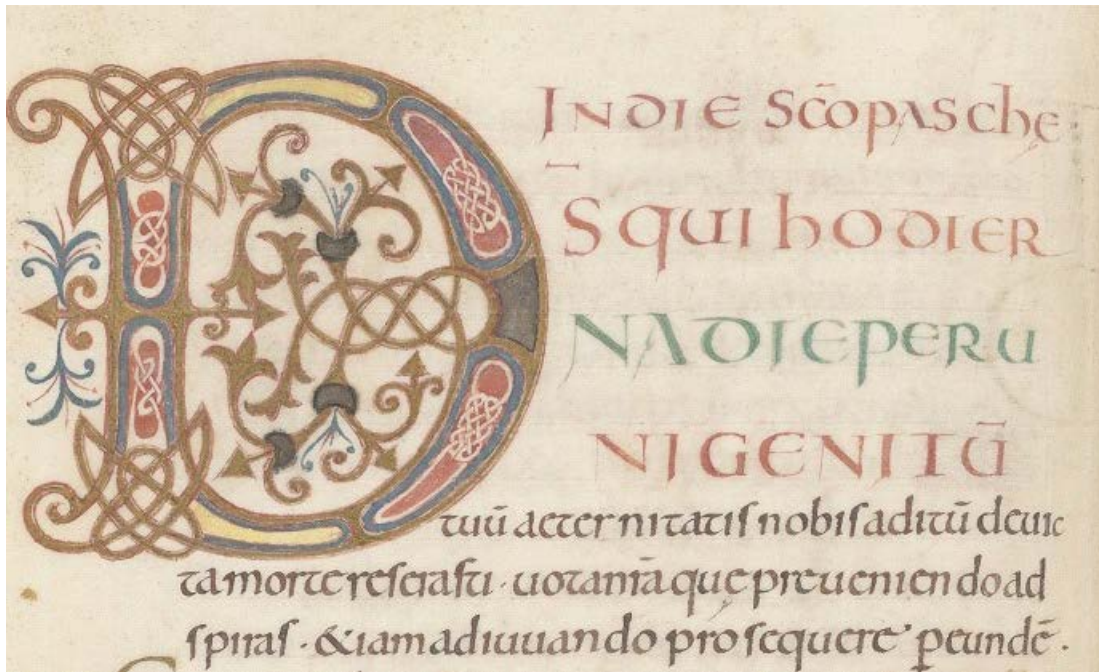 IN DIE SC̄O PASCHE
D̄S QUI HODIER
NA DIE PER U
NIGENITŪ
tuū aeternitatis nobis aditū deuic
ta morte reserasti · uota nr̄a que preueniendo ad
spiras · & iam adiuuando prosequere · p eundē ·